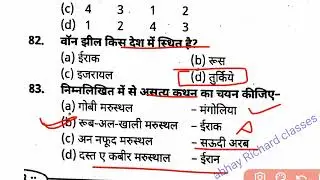 (c) 4 3 1 2
(d) 1 2 4 3
82. वॉन झील किस देश में स्थित है?
(a) ईराक (b) रूस
(c) इजरायल (d) तुर्किये
83. निम्नलिखित में से असत्य कथन का चयन कीजिए-
(a) गोबी मरुस्थल – मंगोलिया
(b) रूब-अल-खाली मरुस्थल – ईराक
(c) अन नफूद मरुस्थल – सऊदी अरब
(d) दस्त ए कबीर मरुस्थाल – ईरान
abhay Richard classes